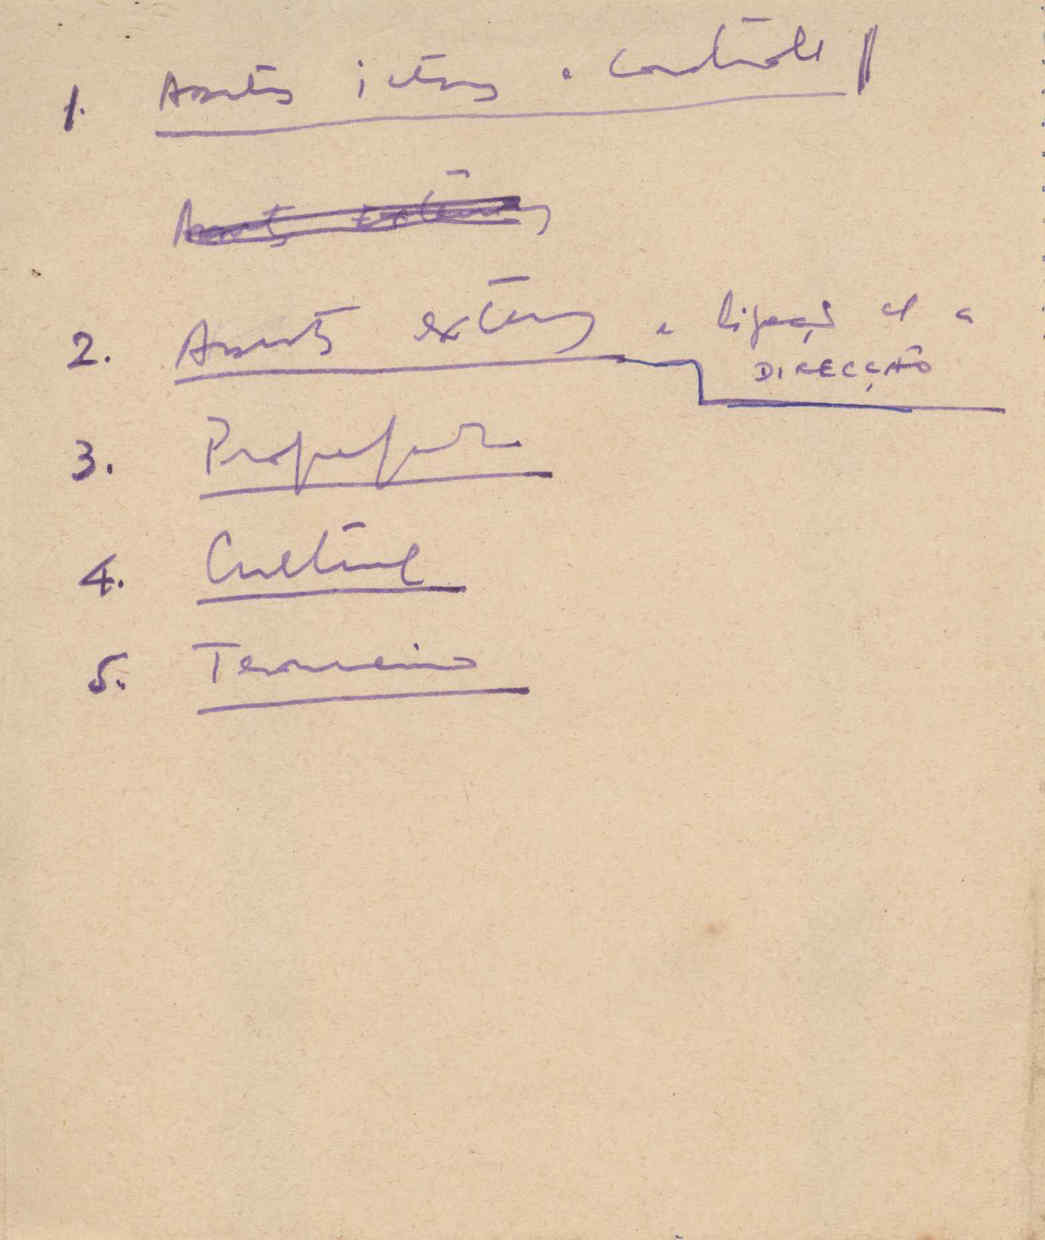 1. Assuntos internos e controle
Assuntos externos
2. Assuntos externos e ligação c/ a
DIRECÇÃO
3. Propaganda
4. Cultural
5. Tesoureiro